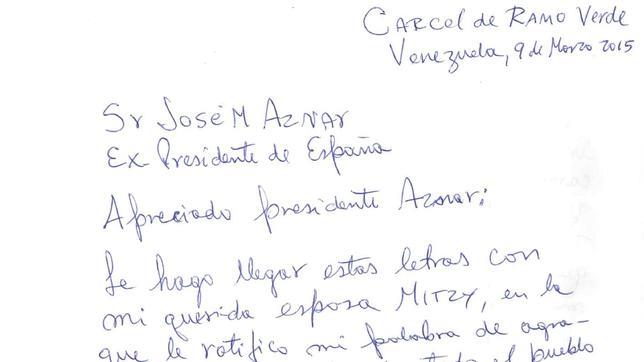 CARCEL de RAMO Verde
Venezuela, 9 de Marzo 2015
Sr José M AZNAR
Ex Presidente de España
Apreciado presidente Aznar:
Le hago llegar estas letras con
mi querida esposa MITZY, en la
que le ratifico mi palabra de agra-
el pueblo